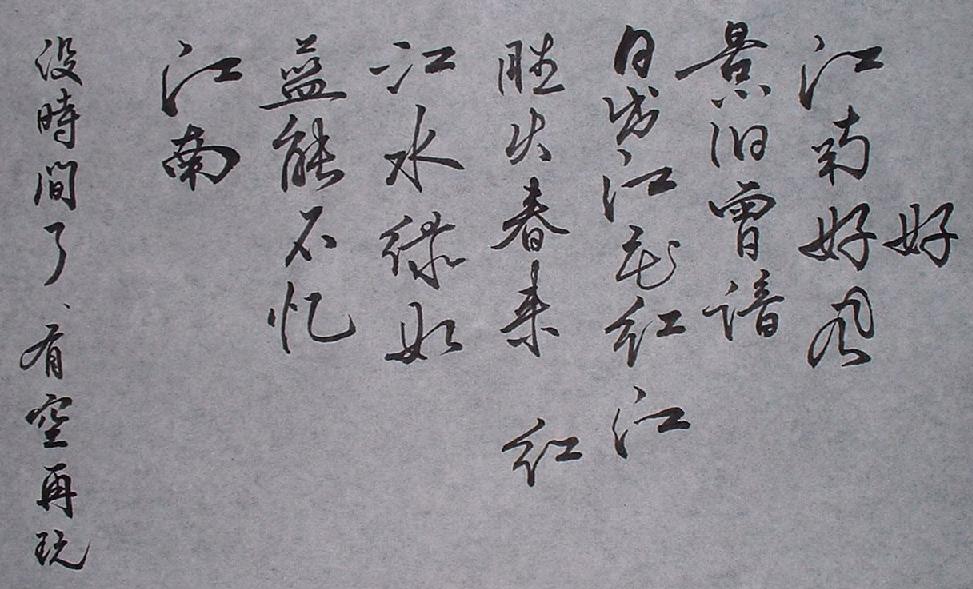 好
江南好风
景旧曾谙
日出江花红江
胜火春来 红
江水绿如
蓝能不忆
江南
没時間了、有空再玩